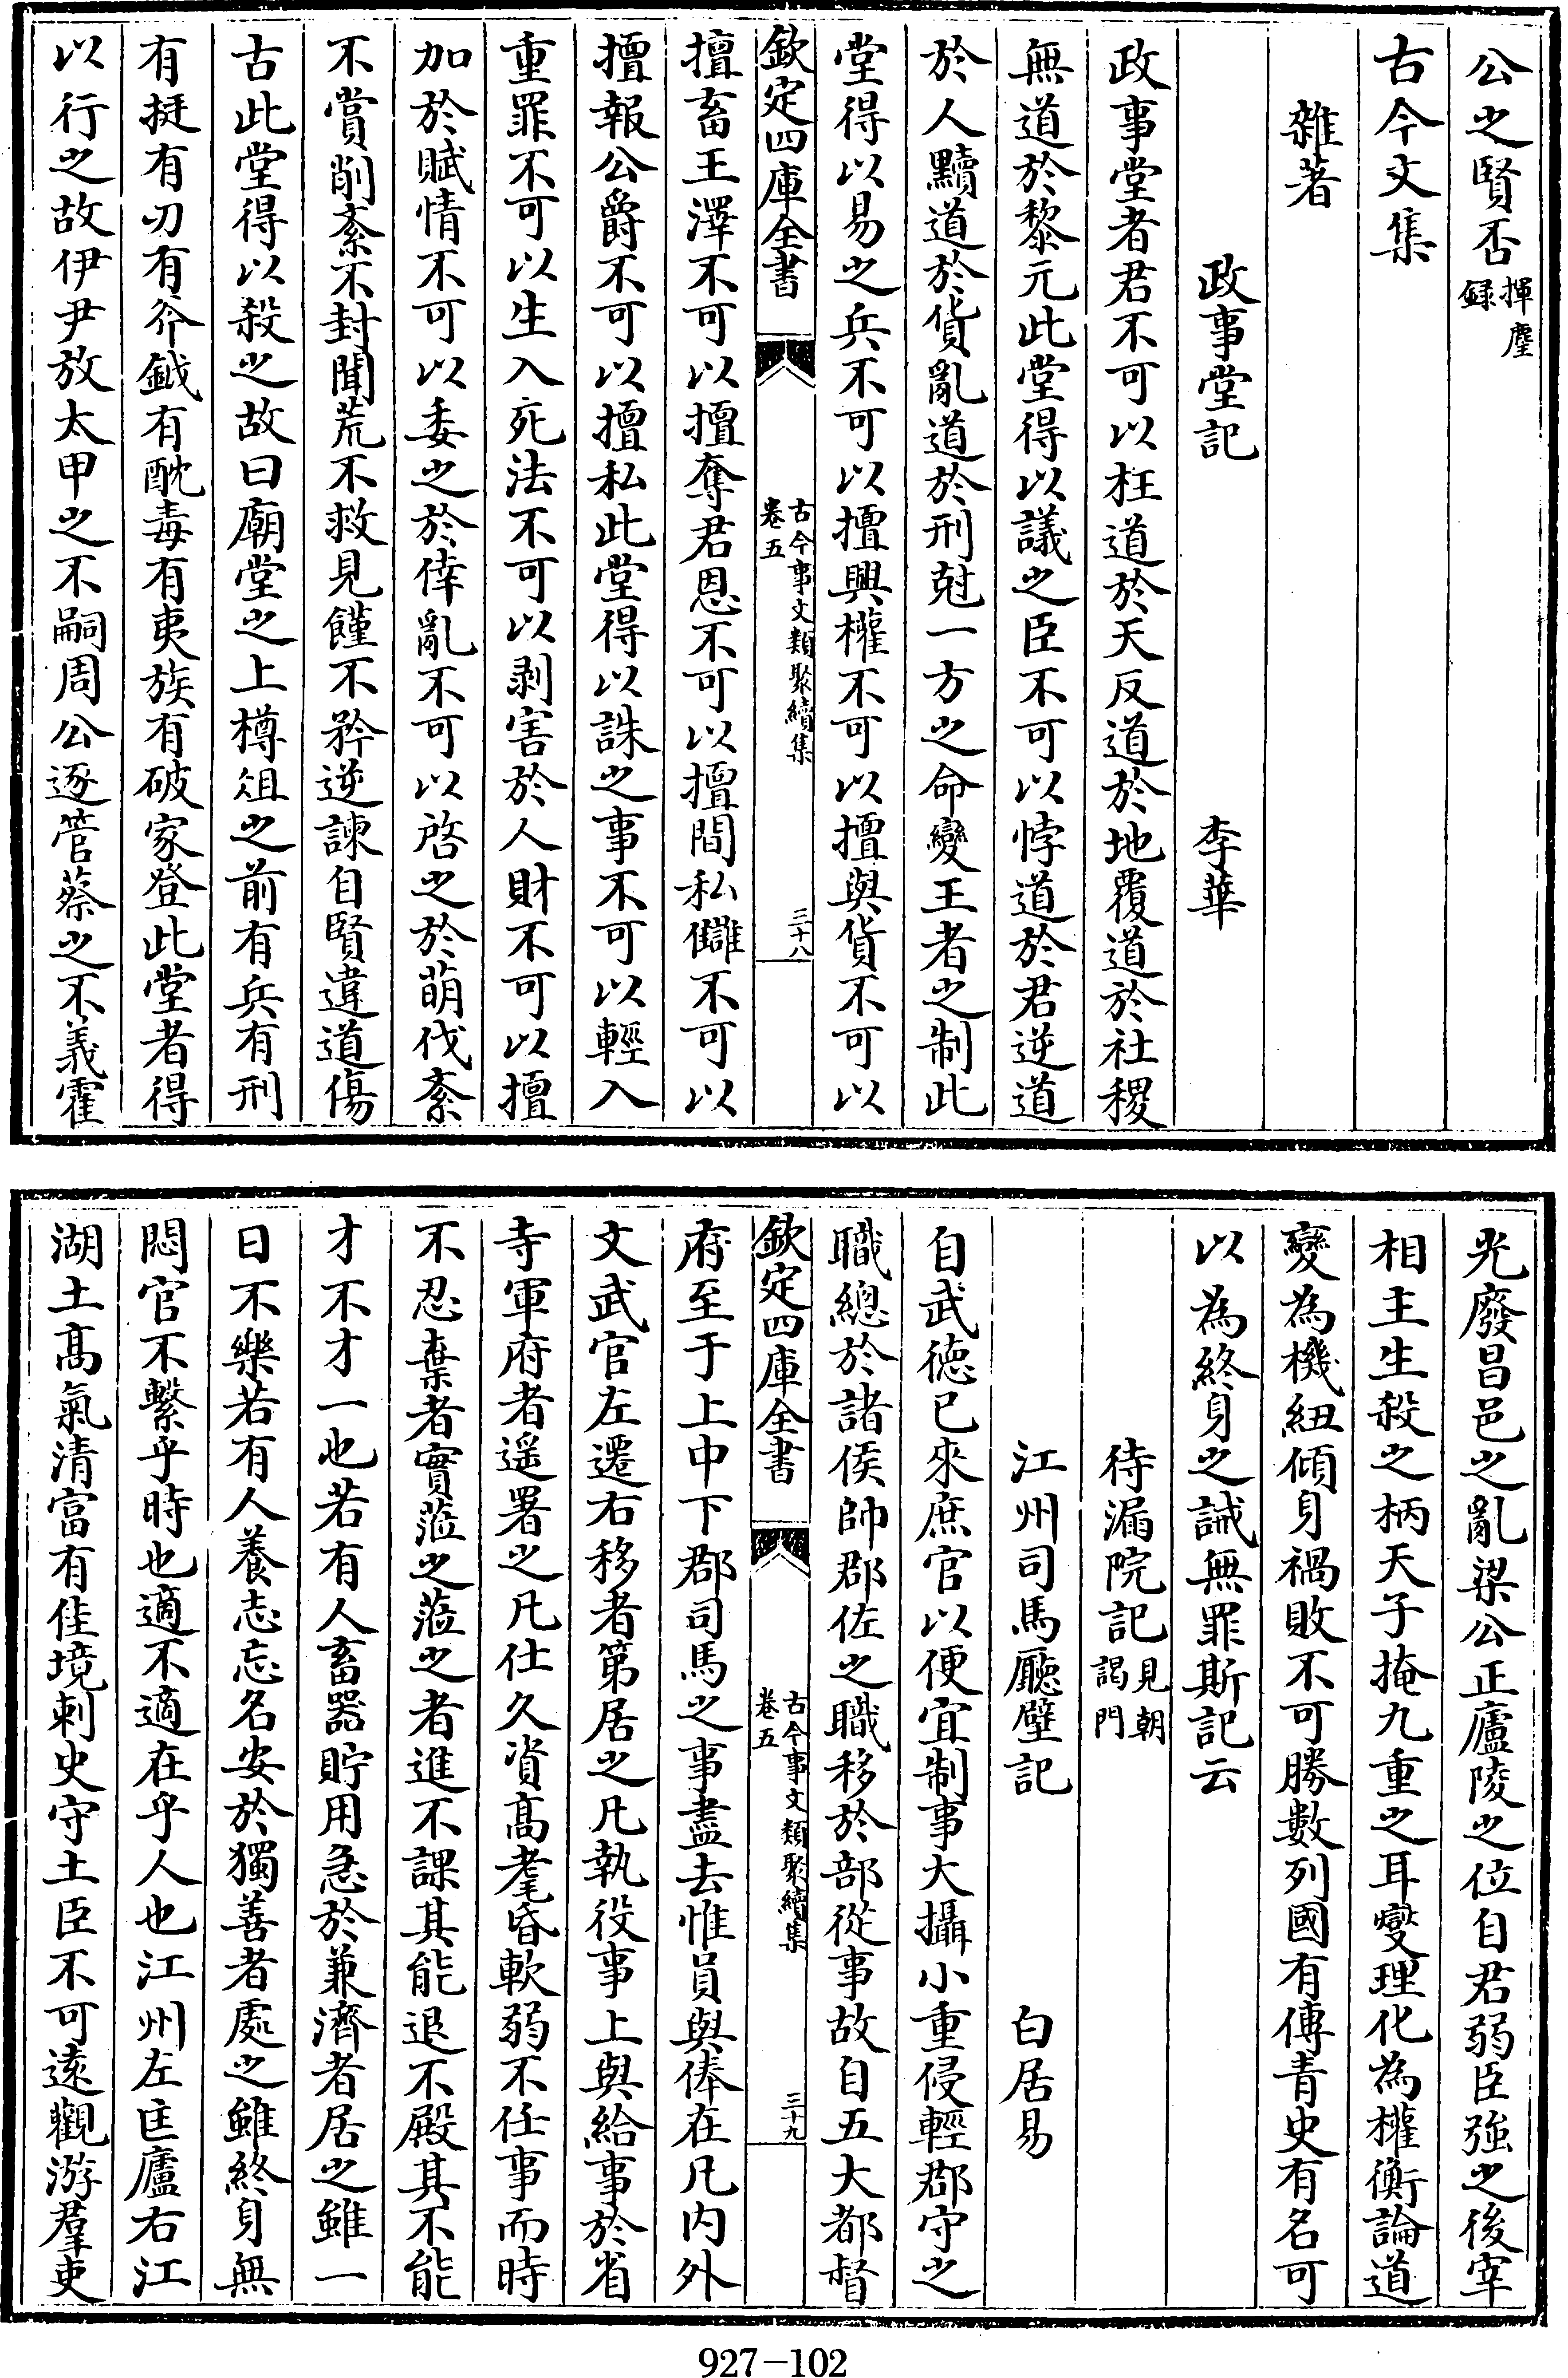 公之賢否揮麈録
古今文集
雜著
政事堂記 李華
政事堂者君不可以枉道於天反道於地覆道於社稷
無道於黎元此堂得以議之臣不可以悖道於君逆道
於人黷道於貨亂道於刑尅一方之命變王者之制此
堂得以易之兵不可以擅興權不可以擅與貨不可以
欽定四庫全書 古今事文類聚續集卷五 三十八
擅畜王澤不可以擅奪君恩不可以擅間私讎不可以
擅報公爵不可以擅私此堂得以誅之事不可以輕入
重罪不可以生入死法不可以剥害於人財不可以擅
加於賦情不可以委之於倖亂不可以啓之於萌伐紊
不賞削紊不封聞荒不救見饉不矜逆諫自賢違道傷
古此堂得以殺之故曰廟堂之上樽俎之前有兵有刑
有挺有刃有斧鉞有酖毒有夷族有破家登此堂者得
以行之故伊尹放太甲之不嗣周公逐管蔡之不義霍
光廢昌邑之亂梁公正廬陵之位自君弱臣強之後宰
相主生殺之柄天子掩九重之耳燮理化為權衡論道
變為機紐傾身禍敗不可勝數列國有傳青史有名可
以為終身之誡無罪斯記云
待漏院記見朝謁門
江州司馬廳壁記 白居易
自武徳已來庶官以便宜制事大攝小重侵輕郡守之
職總於諸侯帥郡佐之職移於部從事故自五大都督
欽定四庫全書 古今事文類聚續集卷五 三十九
府至于上中下郡司馬之事盡去惟員與俸在凡内外
文武官左遷右移者第居之凡執役事上與給事於省
寺軍府者遥署之凡仕久資高耄昏軟弱不任事而時
不忍棄者實蒞之蒞之者進不課其能退不殿其不能
才不才一也若有人畜器貯用急於兼濟者居之雖一
日不樂若有人養志忘名安於獨善者處之雖終身無
悶官不繫乎時也適不適在乎人也江州左匡廬右江
湖土髙氣清富有佳境刺史守土臣不可逺觀游羣吏
927-102